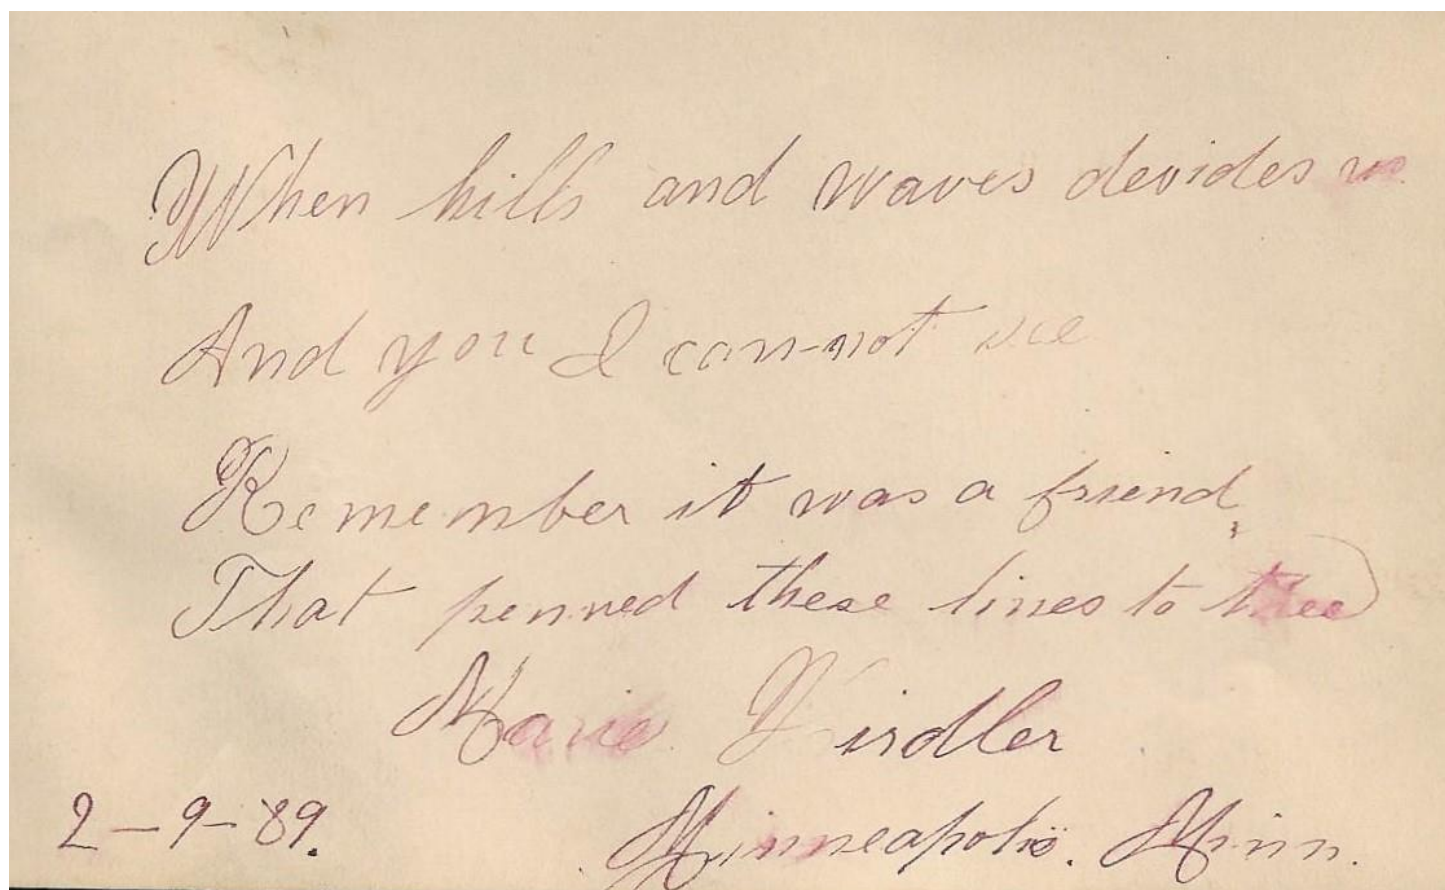 When hills and waves devides us
And you I can-not see
Remember it was a friend,
That penned these lines to thee
Marie
2-9-'89. Minneapolis. Minn.